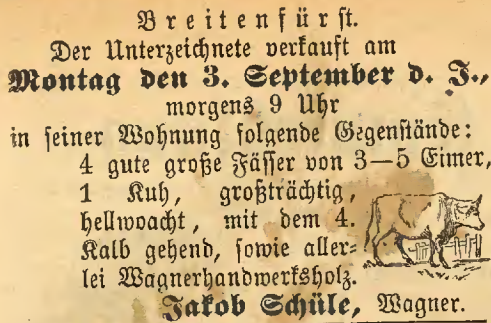 Breitenfürst.
Der Unterzeichnete verkauft am
Montag den 3. September d. J.,
morgens 9 Uhr
in seiner Wohnung folgende Gegenstände:
4 gute große Fässer von 3—5 Eimer,
1 Kuh, großträchtig,
hellwoacht, mit dem 4.
Kalb gehend, sowie aller-
lei Wagnerhandwerksholz.
Jakob Schüle, Wagner.